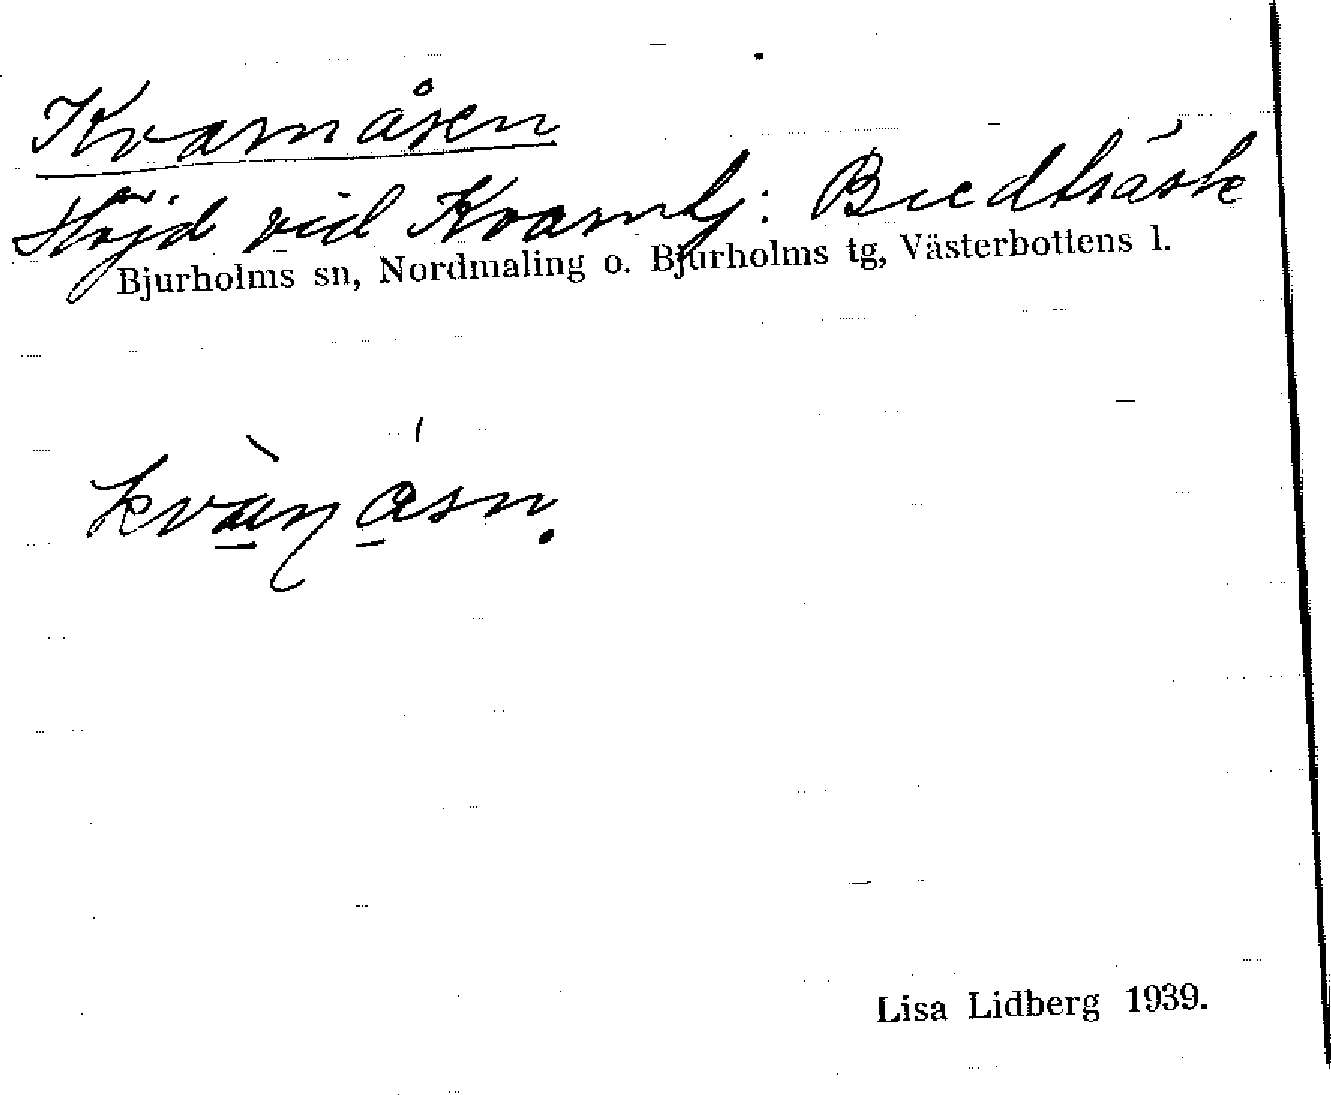 Kvarnåsen
Höjd vid Kvarntj: Bredträsk
Bjurholms sn, Nordmaling o. Bjurholms tg, Västerbottens l.
kvàṇåsn.
Lisa Lidberg 1939.